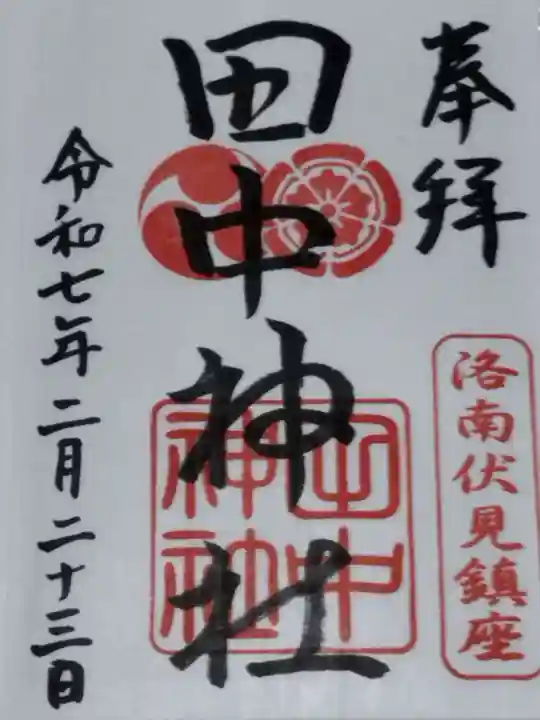 奉拝
洛南伏見鎮座
田中神社
田中
神社
令和七年二月二十三日